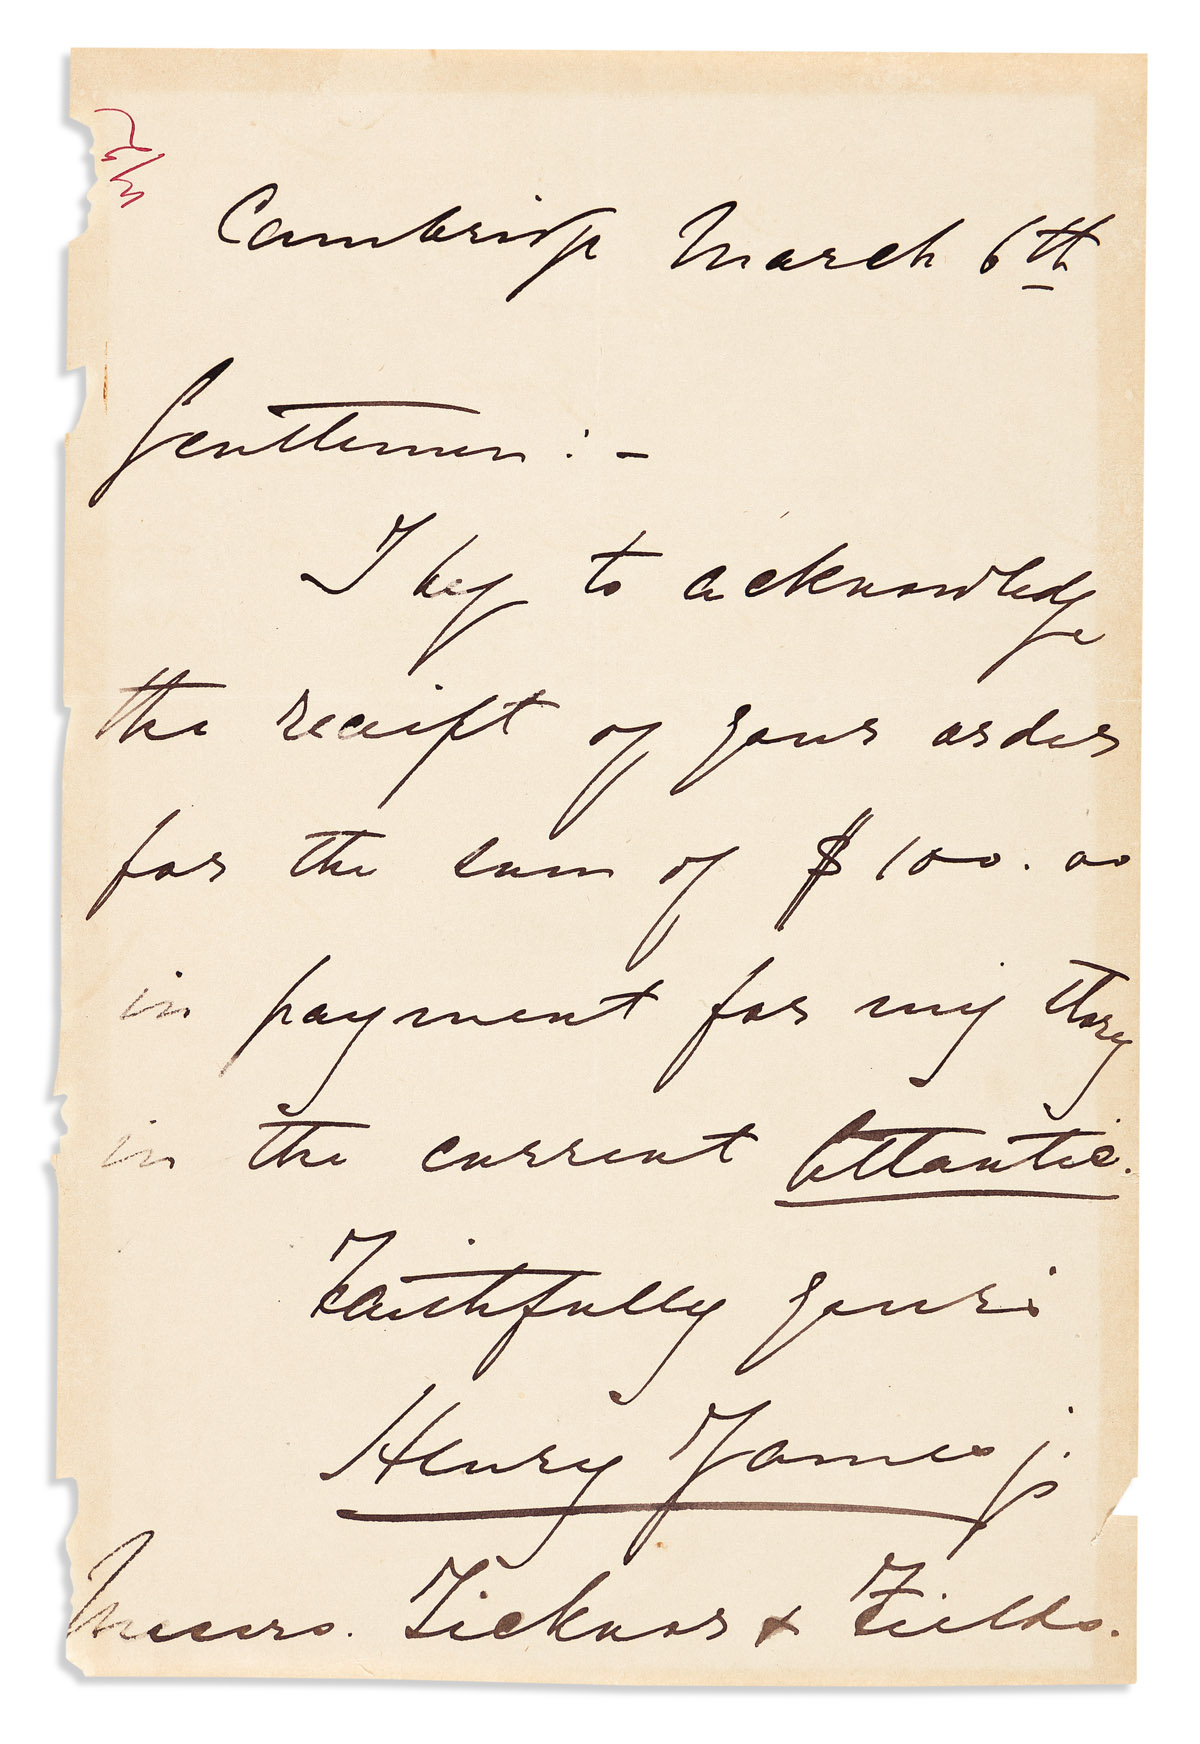 Cambridge March 6th
Gentlemen : –
I beg to acknowledge
the receipt of your order
for the sum of $100.00
in payment for my story
in the current Atlantic.
Faithfully yours
Henry James jr.
Messrs. Ticknor & Fields.